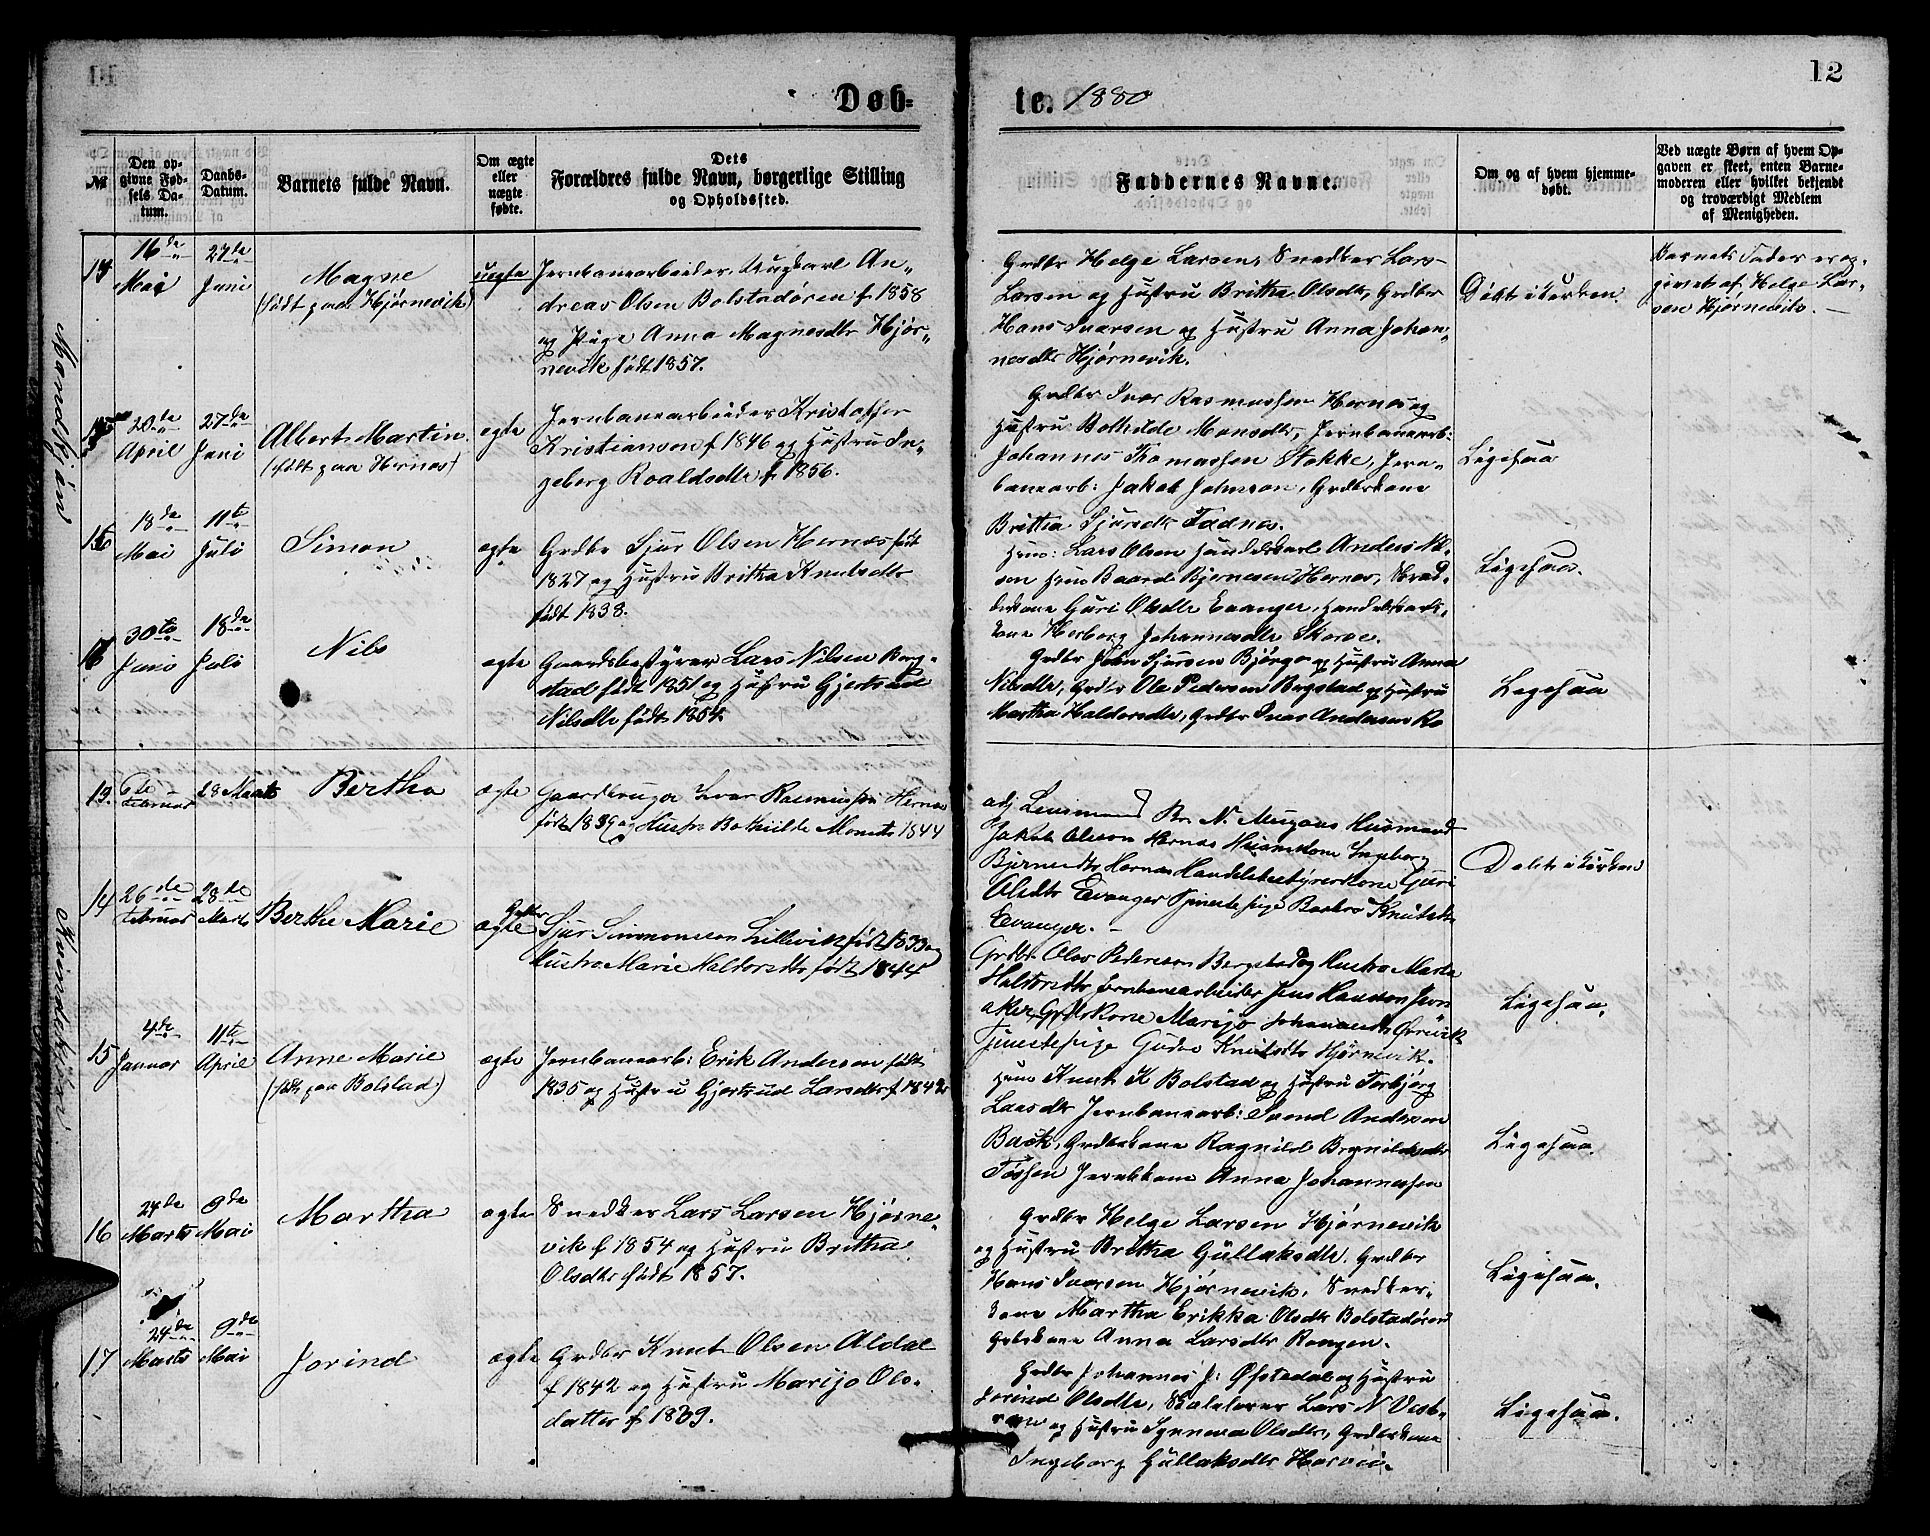 12
Døb=
te. 1880
№
Den op-
givne Fød-
sels Da-
tum.
Daabs-
Datum.
Barnets fulde Navn.
Om ægte
eller
uægte
fødte.
Dets
Forældres fulde Navn, borgerlige Stilling
og Opholdssted.
Faddernes Navne.
Om og af hvem hjemme-
døbt.
Ved uægte Børn af hvem Op-
gaven er skeet, enten Barne-
moderen eller hvilket bekjendt
og troværdigt Medlem
af Menigheden.
Mandkjøn
14
16de
Mai
27de
Juni
Magne
(født paa Hjørnevik)
uegte
Jernbanearbeider, Ungkarl An-
dreas Olsen Bolstadøren f. 1858
og Pige Anna Magnesdtr Hjør-
nevik født 1857.
Grdbr Helge Larsen, Snedker Lars
Larsen og Hustru Britha Olsdtr, Grdbr
Hans Ivarsen og Hustru Anna Johan-
nesdtr Hjørnevik.
Døbt i Kirken
Barnets Fader er op-
givet af Helge Lar-
sen Hjørnevik.
20de
April
27de
Juni
Albert Martin
(født paa Hernes)
egte
Jernbanearbeider Kristoffer
Kristiansen f 1846 og Hustru In-
geborg Roaldsdtr f 1856.
Grdbr Ivar Rasmussen Hernes og
Hustru Bothilde Monsdtr, Jernbanearb:
Johannes Thomassen Stokke, Jern-
banearb: Jakob Johnson, Grdbrkone
Britha Sjursdtr Fadnes.
Ligesaa
18de
Mai
11te
Juli
Simon
egte
Grdbr Sjur Olsen Hernes født
1827 og Hustru Britha Knutsdtr
født 1838.
Hmd: Lars Olsen Handelskarl Anders
sen Hmd Baard Bjørnesen Hernes,
Guri Olsdtr Evanger, Handelskarls-
kone Herborg Johannesdtr Skorve.
Ligesaa.
30te
Juni
18de
Juli
Nils
egte
Gaardsbestyrer Lars Nilsen Berg-
stad født 1851 og Hustru Gjertrud
Nilsdtr født 1854.
Grdbr John Sjursen Bjørge og Hustru Anna
Nilsdtr, Grdbr Ole Pedersen Bergstad og Hustru
Martha Haldorsdtr, Grdbr Ivar Andersen Ro
Ligesaa
Kvindekjøn.
13.
6te
Februar
28 Marts
Bertha
egte
Gaardbruger Ivar Rasmussen Hernes
født 1839 og Hustro Bothilde Monsdtr 1844
adj Lensmand Br. N. Mugaas Husmand
Jakob Olsson Hernes Huusmkone Ingeborg
Bjørnesdtr Hernes Handelsbestyrerkone Guri
Olsdtr Evanger Tjenestepige Barbro Knutsdtr
Evanger.
Døbt i Kirken
14
26de
Februar
28de
Marts
Berthe Marie
egte
Grdbr
Sjur Simmonsson Lillevik født 1833 og
Hustro Marie Haldorsdtr født 1844
Grdbr. Olav Pederson Bergstad og Hustro Marta
Halstensdtr Jernbanearbeider Jens Hansen Jern
aker, Grdbrkone Marijo Johannesdtr
Tjenestepige Gudve Knutsdtr Hjørnevik.
Ligesaa.
15
4de
Januar
11te
April
Anne Marie
(født paa Bolstad)
egte
Jernbanearb: Erik Andersen født
1835 og Hustru Gjertrud Larsdtr f 1842
Hmd Knut K Bolstad og Hustru Torbjørg
Larsdtr Jernbanearb: Svend Andersen
Back, Grdbrkone Ragnild Brynildsdtr
Fossen Jernbkone Anna Johannessen
Ligesaa.
16
24de
Marts
9de
Mai
Martha
egte
Snedker Lars Larsen Hjørne-
vik f 1854 og Hustru Britha
Olsdtr født 1857.
Grdbr Helge Larsen Hjørnevik
og Hustru Britha Gullaksdtr, Grdbr
Hans Ivarsen Hjørnevik, Snedker-
kone Martha Erikka Olsdtr Bolstadøren
Grdbrkone Anna Larsdtr Rongen.
Ligesaa.
17
24de
Marts
9de
Mai
Jorind
egte
Grdbr Knut Olsen Aldal
f 1842 og Hustru Marijo Ols-
datter f 1839.
Grdbr Johannes J: Øfstedal og Hustru
Jorind Olsdtr, Skolelærer Lars N Vest-
og Hustru Synneva Olsdtr, Grdbrkone
Ingeborg Gullaksdtr Horvei.
Ligesaa.